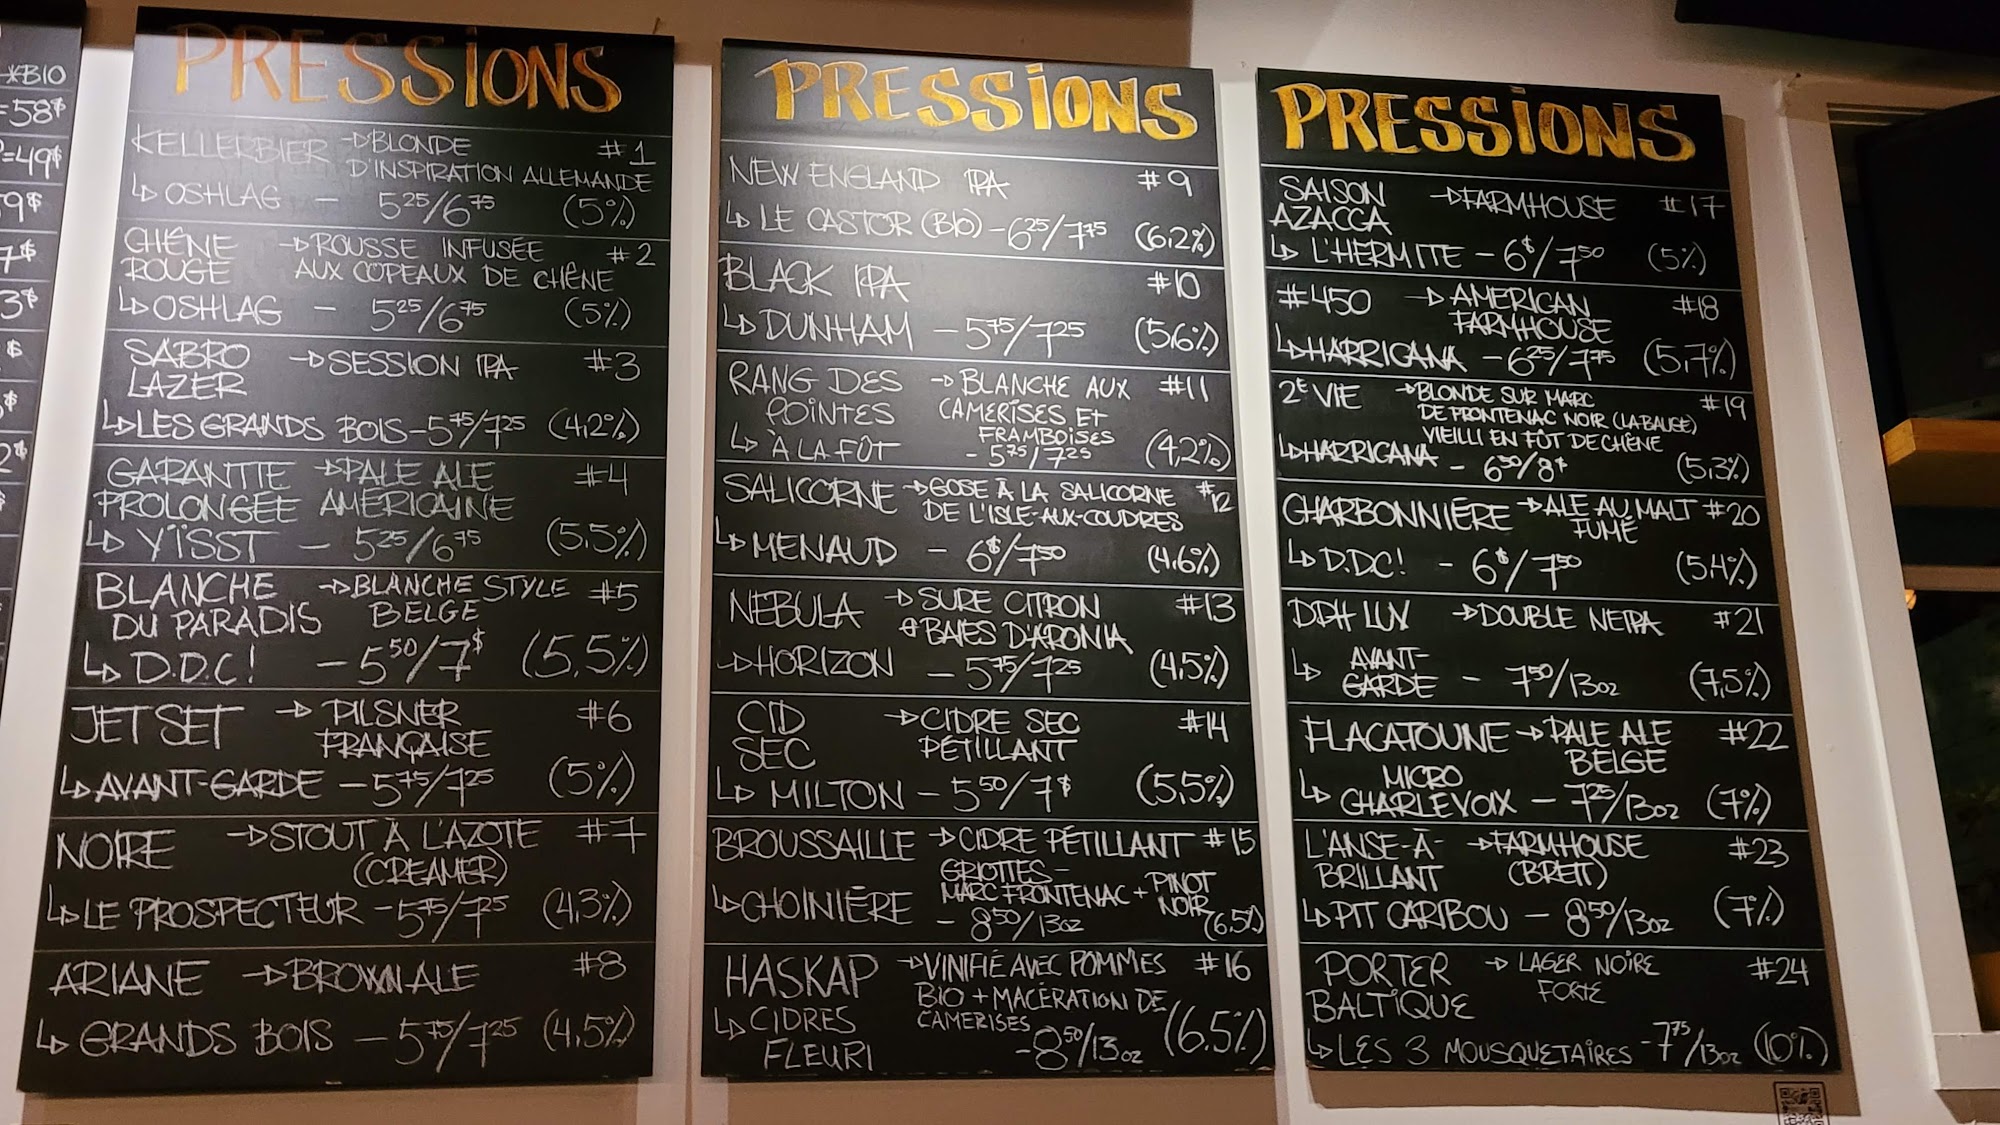 *BIO
=58$
=49$
9$
7$
3$
$
$
2$
$
PRESSIONS
KELLERBIER → BLONDE #1
D'INSPIRATION ALLEMANDE
↳ OSHLAG - 5²⁵/6⁷⁵ (5%)
CHÊNE → ROUSSE INFUSÉE #2
ROUGE AUX COPEAUX DE CHÊNE
↳ OSHLAG - 5²⁵/6⁷⁵ (5%)
SABRO → SESSION IPA #3
LAZER
↳ LES GRANDS BOIS - 5⁷⁵/7²⁵ (4,2%)
GARANTIE → PALE ALE #4
PROLONGÉE AMÉRICAINE
↳ YÏSST - 5²⁵/6⁷⁵ (5.5%)
BLANCHE → BLANCHE STYLE #5
DU PARADIS BELGE
↳ D.D.C! - 5⁵⁰/7$ (5,5%)
JET SET → PILSNER #6
FRANÇAISE
↳ AVANT-GARDE - 5⁷⁵/7²⁵ (5%)
NOIRE → STOUT À L'AZOTE #7
(CREAMER)
↳ LE PROSPECTEUR - 5⁷⁵/7²⁵ (4,3%)
ARIANE → BROWN ALE #8
↳ GRANDS BOIS - 5⁷⁵/7²⁵ (4,5%)
PRESSIONS
NEW ENGLAND IPA #9
↳ LE CASTOR (BIO) - 6²⁵/7⁷⁵ (6,2%)
BLACK IPA #10
↳ DUNHAM - 5⁷⁵/7²⁵ (5,6%)
RANG DES → BLANCHE AUX #11
POINTES CAMERISES ET
FRAMBOISES
↳ À LA FÛT - 5⁷⁵/7²⁵ (4,2%)
SALICORNE → GOSE À LA SALICORNE #12
DE L'ISLE-AUX-COUDRES
↳ MENAUD - 6$/7⁵⁰ (4.6%)
NEBULA → SURE CITRON #13
& BAIES D'ARONIA
→ HORIZON - 5⁷⁵/7²⁵ (4,5%)
CID → CIDRE SEC #14
SEC PÉTILLANT
↳ MILTON - 5⁵⁰/7$ (5,5%)
BROUSSAILLE → CIDRE PÉTILLANT #15
GRIOTTES -
MARC FRONTENAC + PINOT
NOIR
↳ CHOINIÈRE - 8⁵⁰/13oz (6.5%)
HASKAP → VINIFIÉ AVEC POMMES #16
BIO + MACÉRATION DE
CAMERISES
↳ CIDRES - 8⁵⁰/13oz (6.5%)
FLEURI
PRESSIONS
SAISON → FARMHOUSE #17
AZACCA
↳ L'HERMITE - 6$/7⁵⁰ (5%)
#450 → AMERICAN #18
FARMHOUSE
↳ HARRICANA - 6²⁵/7⁷⁵ (5,7%)
2ᴱ VIE → BLONDE SUR MARC #19
DE FRONTENAC NOIR (LA BAUGE)
VIEILLI EN FÛT DE CHÊNE
↳ HARRICANA - 6⁵⁰/8$ (5,3%)
CHARBONNIÈRE → ALE AU MALT #20
FUMÉ
↳ D.D.C! - 6$/7⁵⁰ (5,4%)
DDH LUX → DOUBLE NEIPA #21
↳ AVANT-
GARDE - 7⁵⁰/13oz (7,5%)
FLACATOUNE → PALE ALE #22
BELGE
↳ MICRO
CHARLEVOIX - 7²⁵/13oz (7%)
L'ANSE-À- → FARMHOUSE #23
BRILLANT (BRETT)
↳ PIT CARIBOU - 8⁵⁰/13oz (7%)
PORTER → LAGER NOIRE #24
BALTIQUE FORTE
↳ LES 3 MOUSQUETAIRES - 7⁷⁵/13oz (10%)